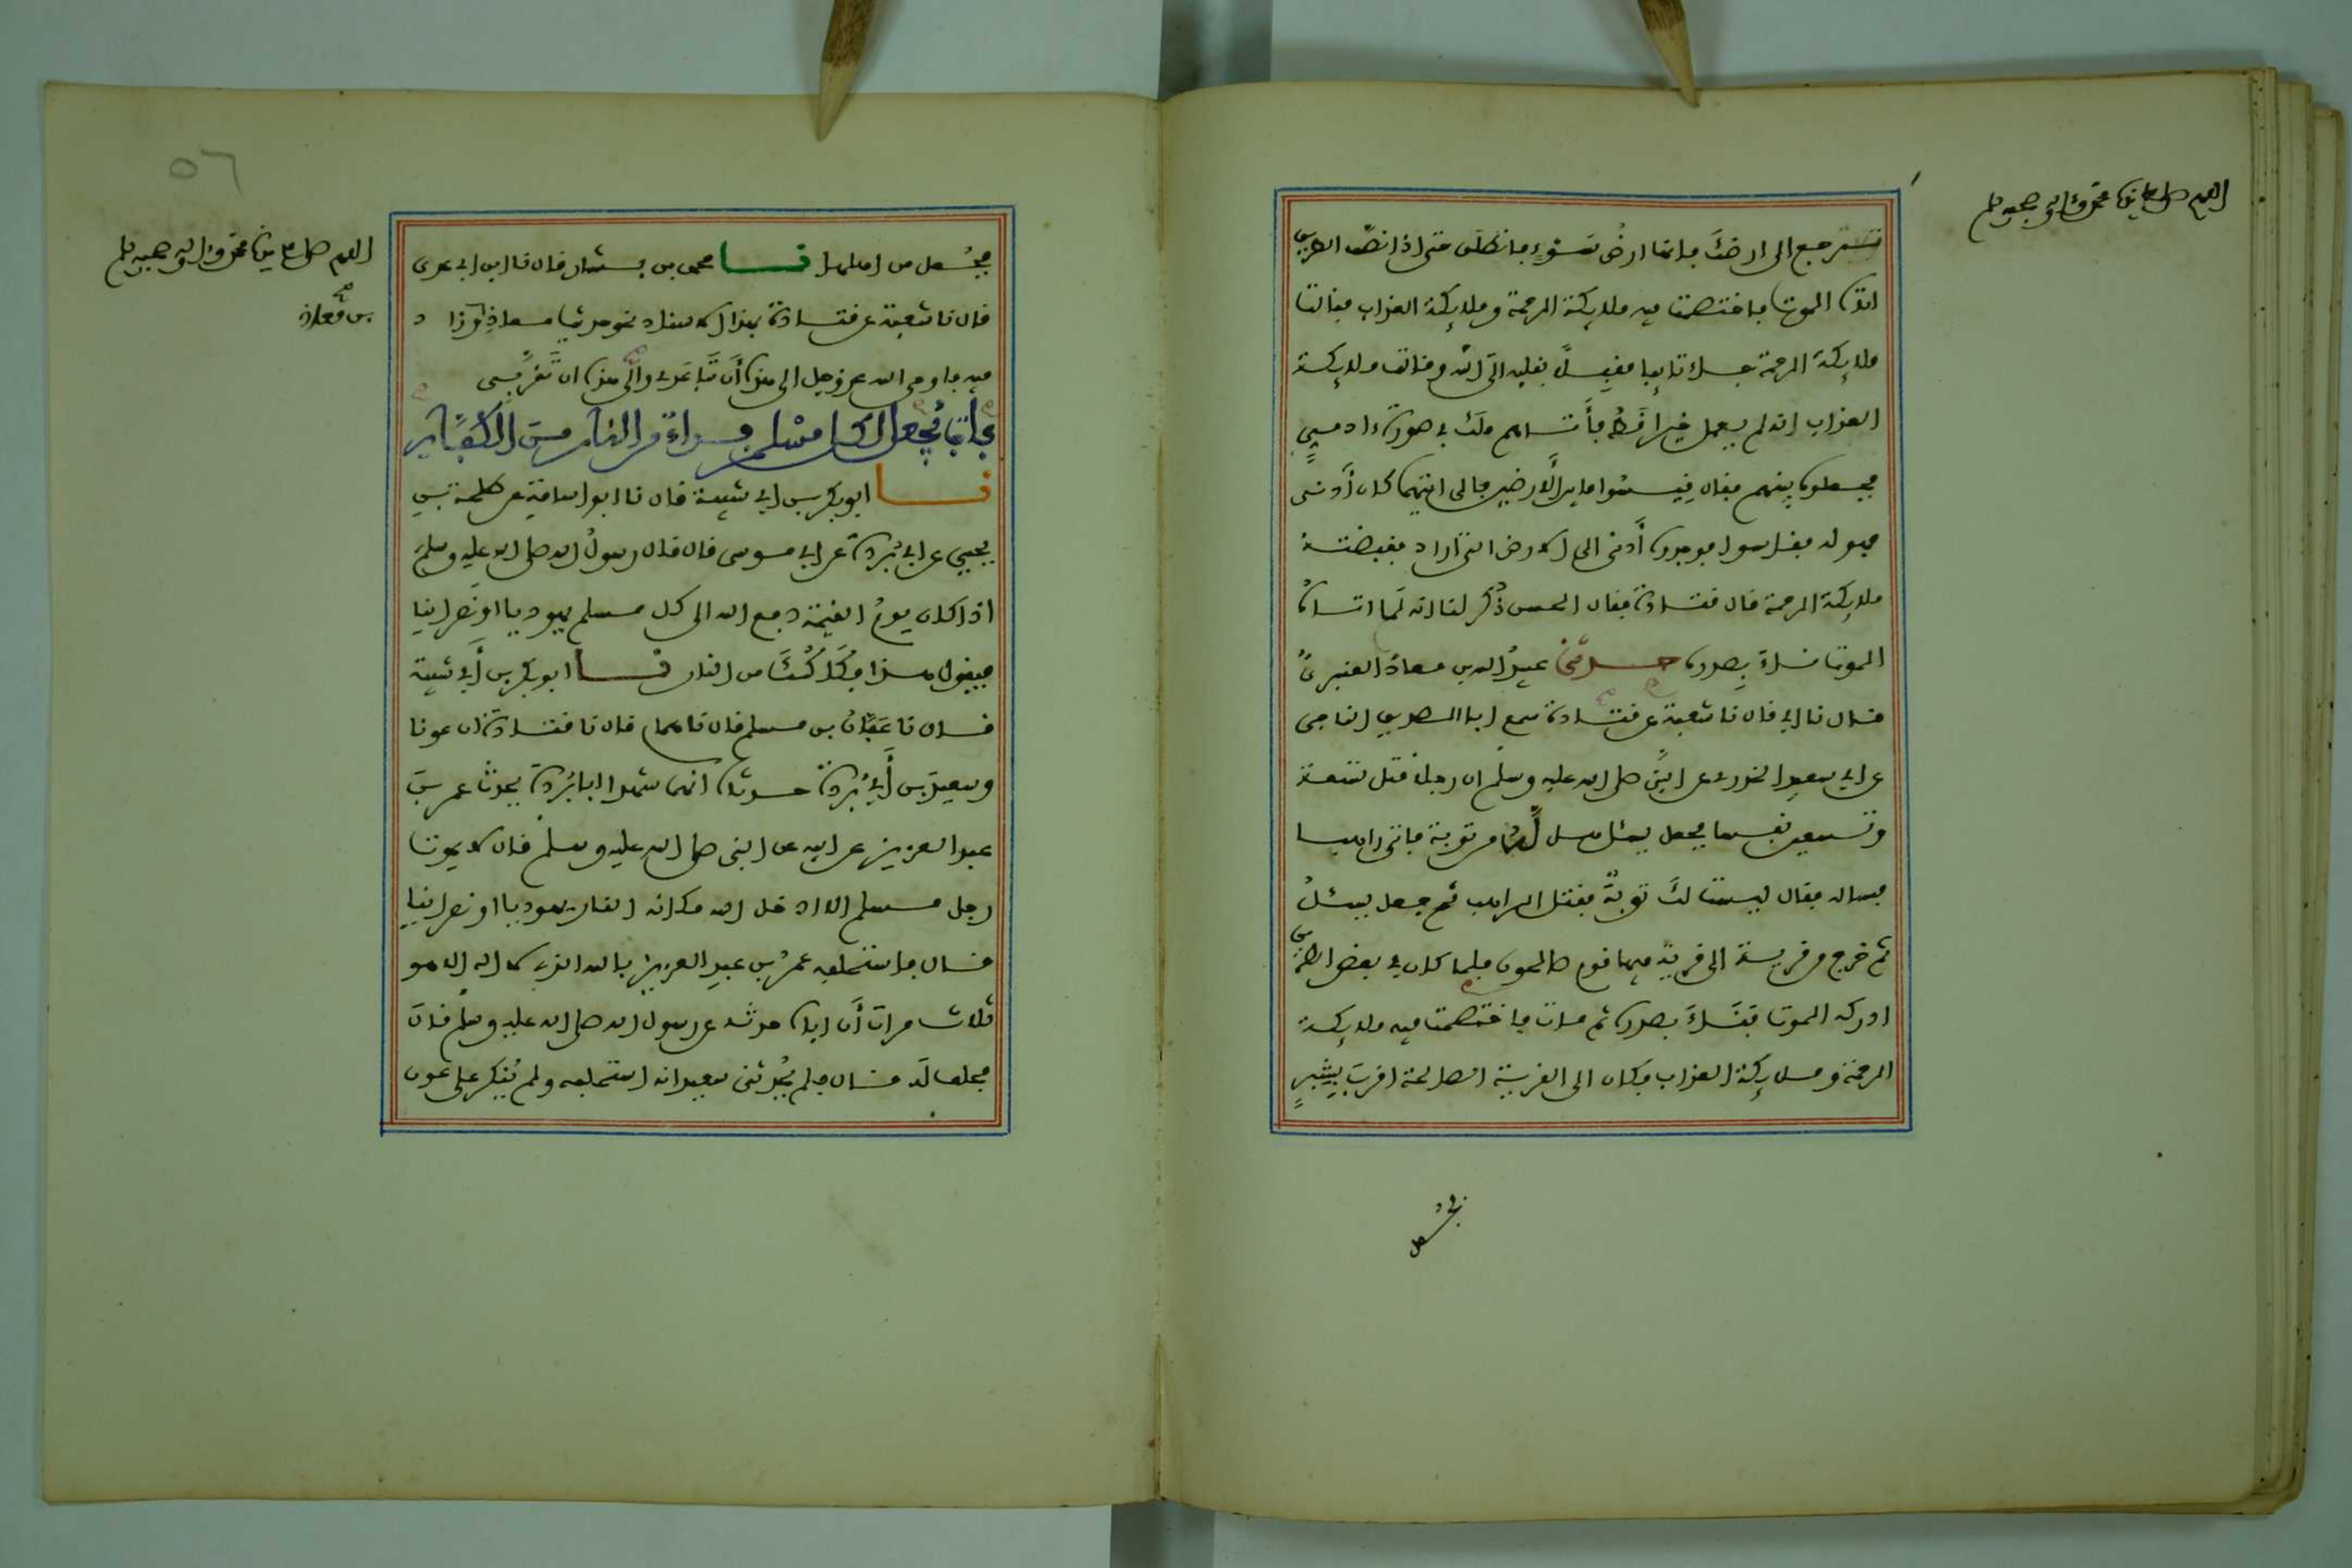 اللهم صل على سيدنا محمد وآله وصحبه وسلم
ترجع الى ارضك فانها ارض سوء فانطلق حتى اذا نصف الطريق
اتاه الموت فاختصمت فيه ملايكة الرحمة وملايكة العذاب فقالت
ملايكة الرحمة جاء تايبا مقبلا بقلبه الى الله وقالت ملايكة
العذاب انه لم يعمل خيرا قط فأتاهم ملك في صورة ادمي
فجعلوه بينهم فقال قيسوا ما بين الارضين فالى ايتهما كان أدنى
فهو له فقاسوا فوجدوه أدنى الى الارض التي اراد فقبضته
ملايكة الرحمة قال قتادة فقال الحسن ذكر لنا انه لما اتاه
الموت ناء بصدره حدثني عبيد الله بن معاذ العنبري
قال نا ابي قال نا شعبة عن قتادة سمع ابا الصديق الناجي
عن ابي سعيد الخدري عن النبي صلى الله عليه وسلم ان رجلا قتل تسعة
وتسعين نفسا فجعل يسئل هل له من توبة فاتى راهبا
فساله فقال ليست لك توبة فقتل الراهب ثم جعل يسئل
ثم خرج من قرية الى قرية فيها قوم صالحون فلما كان في بعض الطريق
ادركه الموت فناء بصدره ثم مات فاختصمت فيه ملايكة
الرحمة وملايكة العذاب فكان الى القرية الصالحة اقرب بشبر
٥٦
اللهم صل على سيدنا محمد وآله وصحبه وسلم
بن معاذ
فجعل من اهلها نا محمد بن بشار قال نا ابن ابي عدي
قال نا شعبة عن قتادة بهذا الاسناد نحو حديث معاذ وزاد
فيه فاوحى الله عز وجل الى هذه أن تباعدي والى هذه ان تقربي
باب يجعل لكل مسلم فداء من النار من الكفار
نا ابو بكر بن ابي شيبة قال نا ابو اسامة عن طلحة بن
يحيى عن ابي بردة عن ابي موسى قال قال رسول الله صلى الله عليه وسلم
اذا كان يوم القيمة دفع الله الى كل مسلم يهوديا او نصرانيا
فيقول هذا فكاكك من النار نا ابو بكر بن أبي شيبة
قال نا عفان بن مسلم قال نا همام قال نا قتادة ان عونا
وسعيد بن أبي بردة حدثاه انهما شهدا ابا بردة يحدث عمر بن
عبد العزيز عن ابيه عن النبي صلى الله عليه وسلم قال لا يموت
رجل مسلم الا ادخل الله مكانه النار يهوديا او نصرانيا
قال فاستحلفه عمر بن عبد العزيز بالله الذي لا اله الا هو
ثلاث مرات أن اباه حدثه عن رسول الله صلى الله عليه وسلم قال
فحلف له قال فلم يحدثني سعيد انه استحلفه ولم ينكر على عون